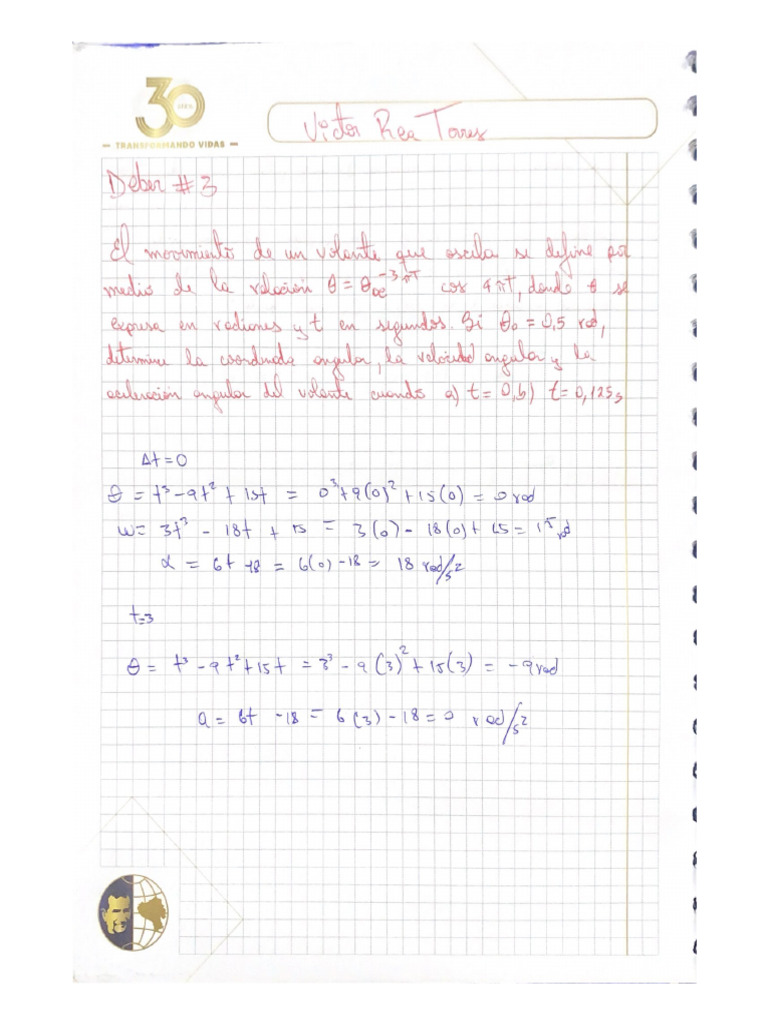 30
AÑOS
— TRANSFORMANDO VIDAS —
Victor Rea Torres
Deber # 3
El movimiento de un volante que oscila se define por
medio de la relación θ = θ₀e^-3πT cos 4πT, donde θ se
expresa en radianes y t en segundos. Si θ₀ = 0,5 rad,
determine la coordenada angular, la velocidad angular y la
aceleración angular del volante cuando a) t = 0, b) t = 0,125s
Δt = 0
θ = t³ - 9t² + 15t = 0³ + 9(0)² + 15(0) = 0 rad
ω = 3t³ - 18t + 15 = 3(0) - 18(0) + 15 = 15 rd
α = 6t - 18 = 6(0) - 18 = 18 rad/s²
t=3
θ = t³ - 9t² + 15t = 3³ - 9(3)² + 15(3) = -9 rad
a = 6t - 18 = 6(3) - 18 = 0 rad/s²